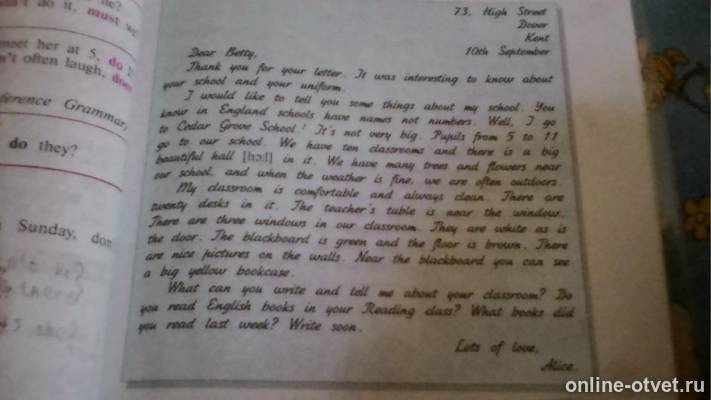 he?
do it, must
73, High Street
Dover
Kent
10th September
meet her at 5, do
n't often laugh, does
ference Grammar,
do they?
Sunday, don
Dear Betty,
Thank you for your letter. It was interesting to know about
your school and your uniform.
I would like to tell you some things about my school. You
know in England schools have names not numbers. Well, I go
to Cedar Grove School! It's not very big. Pupils from 5 to 11
go to our school. We have ten classrooms and there is a big
beautiful hall [hɔ:l] in it. We have many trees and flowers near
our school, and when the weather is fine, we are often outdoors.
My classroom is comfortable and always clean. There are
twenty desks in it. The teacher's table is near the window.
There are three windows in our classroom. They are white as is
the door. The blackboard is green and the floor is brown. There
are nice pictures on the walls. Near the blackboard you can see
a big yellow bookcase.
What can you write and tell me about your classroom? Do
you read English books in your Reading class? What books did
you read last week? Write soon.
Lots of love,
Alice.
online-otvet.ru